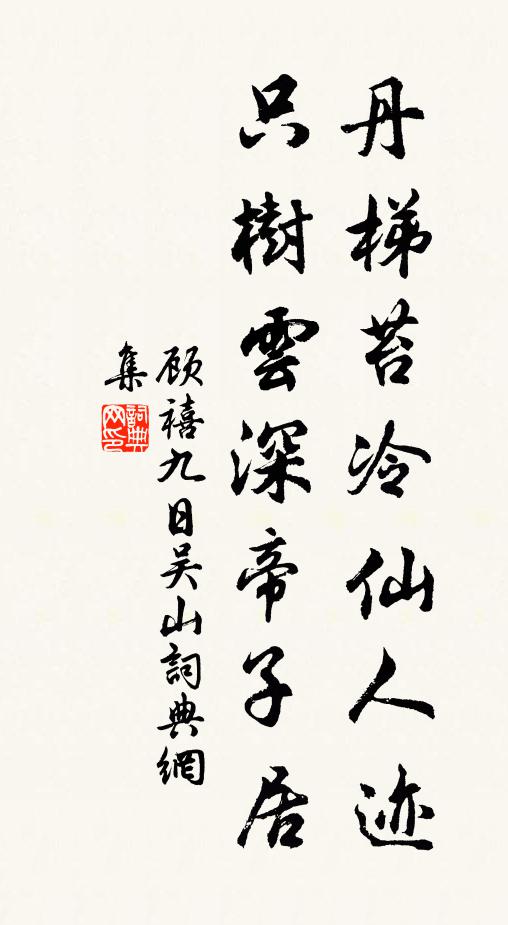 丹梯苔冷仙人迹
只樹雲深帝子居
顾禧九日吴山詞典網
集
詞典网印